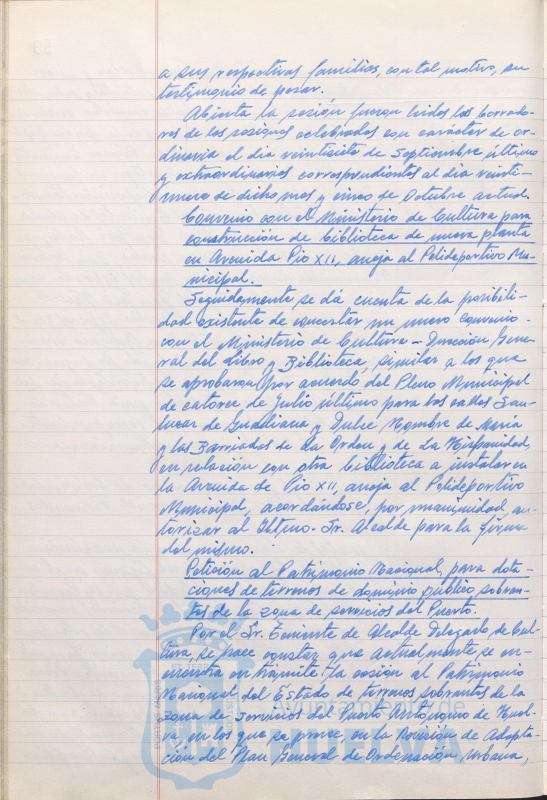 a sus respectivas familias, con tal motivo, su
testimonio de pesar.
Abierta la sesión fueron leídos los borrado-
res de las sesiones celebradas con carácter de or-
dinaria el día veintisiete de Septiembre último
y extraordinarias correspondientes al día veinti-
nueve de dicho mes y cinco de Octubre actual.
Convenio con el Ministerio de Cultura para
construcción de biblioteca de nueva planta
en Avenida Pío XII, aneja al Polideportivo Mu-
nicipal.
Seguidamente se dá cuenta de la posibili-
dad existente de concertar un nuevo convenio
con el Ministerio de Cultura - Dirección Gene-
ral del Libro y Biblioteca, similar a los que
se aprobaron por acuerdo del Pleno Municipal
de catorce de Julio último para las calles San-
lucar de Guadiana y Dulce Nombre de María
y las Barriadas de La Orden y de La Hispanidad,
en relación con otra biblioteca a instalar en
la Avenida de Pío XII, aneja al Polideportivo
Municipal, acordándose, por unanimidad, au-
torizar al Iltmo. Sr. Alcalde para la firma
del mismo.
Petición al Patrimonio Nacional, para dota-
ciones de terrenos de dominio público sobran-
tes de la zona de servicios del Puerto.
Por el Sr. Teniente de Alcalde Delegado de Cul-
tura, se hace constar que actualmente se en-
cuentra en trámite la cesión al Patrimonio
Nacional del Estado de terrenos sobrantes de la
zona de servicios del Puerto Autónomo de Huel-
va, en los que se prevee, en la Revisión de Adapta-
ción del Plan General de Ordenación Urbana,
Ayuntamiento de
HUELVA